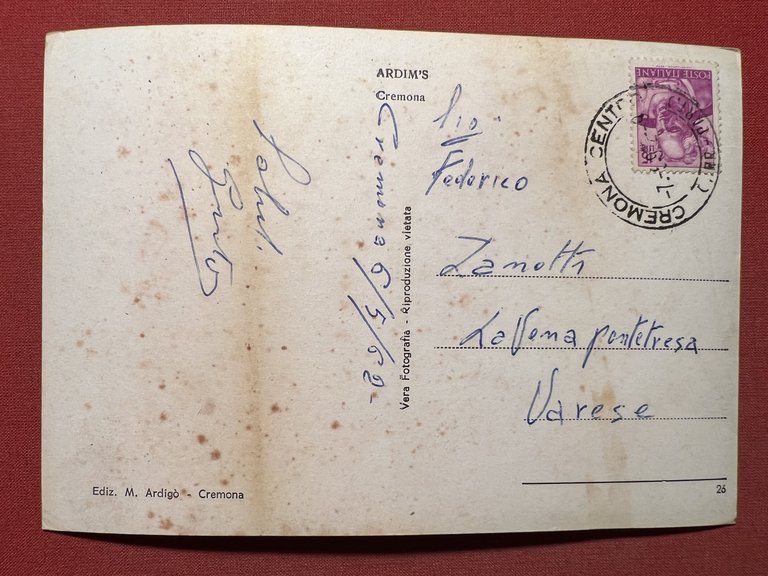 ARDIM'S
Cremona
Cremona 6/5/62-
Saluti
Vera Fotografia - Riproduzione vietata
Sig.
Federico
Zanotti
Lavena pontetresa
Varese
Ediz. M. Ardigò - Cremona
26
POSTE ITALIANE
CREMONA CENTRO